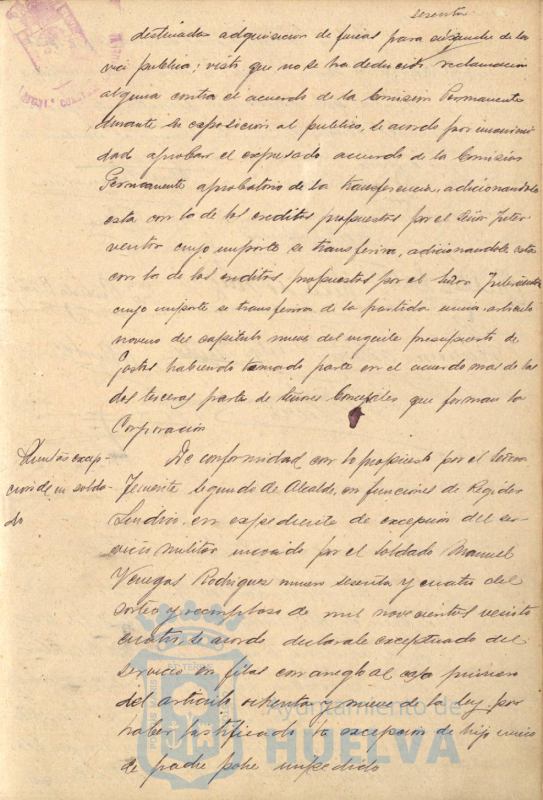 sesenta
destinadas adquisicion de fincas para ensanche de la
via publica; visto que no se ha deducido reclamacion
alguna contra el acuerdo de la Comision Permanente
durante su exposicion al publico, se acordo por unanimi
dad aprobar el expresado acuerdo de la Comision
Permanente aprobatorio de la transferencia, adicionandole
esta con la de los creditos propuestos por el Señor Inter
ventor cuyo importe se transferira, adicionandole esta
con la de los creditos propuestos por el Señor Interventor
cuyo importe se transferira de la partida unica, articulo
noveno del capitulo nueve del vigente presupuesto de
Gastos habiendo tomado parte en el acuerdo mas de las
dos terceras partes de Señores Concejales que forman la
Corporacion
excep-
cion de un solda-
do
De conformidad con lo propuesto por el Señor
Teniente segundo de Alcalde, en funciones de Regidor
Sindico, en expediente de excepcion del ser
vicio militar incoado por el soldado Manuel
Venegas Rodriguez numero sesenta y cuatro del
sorteo y reemplazo de mil novecientos veinte
cuatro, se acordo declararle exceptuado del
servicio en filas con arreglo al caso primero
del articulo ochenta y nueve de la ley, por
haber justificado la excepcion de hijo unico
de padre pobre impedido
Ayuntamiento de
HUELVA